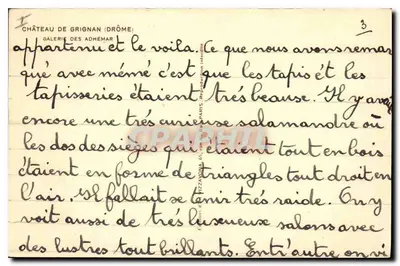 I
3
CHÂTEAU DE GRIGNAN (DRÔME)
GALERIE DES ADHÉMAR
appartenu et le voila. Ce que nous avons remar
qué avec mémé c'est que les tapis ét les
tapisseries étaient trés beause. Il y avait
encore une trés curieuse salamandre où
les dos des sièges qui étaient tout en bois
étaient en forme de triangles tout droit en
l'air. Il fallait se tenir trés raide. On y
voit aussi de trés luxueux salons avec
des lustres tout brillants. Entr'autre on vi